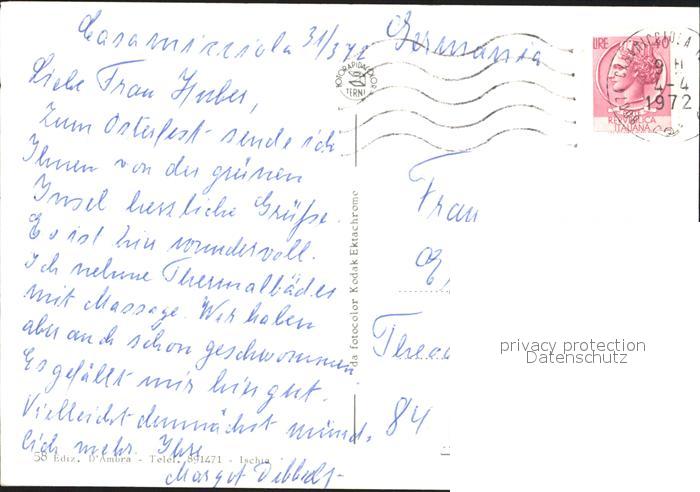 Casamicciola 31/3 72
Liebe Frau Huber,
Zum Osterfest sende ich
Ihnen von der grünen
Insel herzliche Grüße.
Es ist hier wundervoll.
Ich nehme Thermalbäder
mit Massage. Wir haben
aber auch schon geschwommen.
Es gefällt mir hier gut.
Vielleicht demnächst münd-
lich mehr. Ihre
Margot
58 Ediz. D'Ambra - Telef. 891471 - Ischia
da fotocolor Kodak Ektachrome
FOTORAPIDACOLOR
TERNI
Germania
LIRE 40
REPUBBLICA
ITALIANA
4-4
1972
Frau
84
privacy protection
Datenschutz